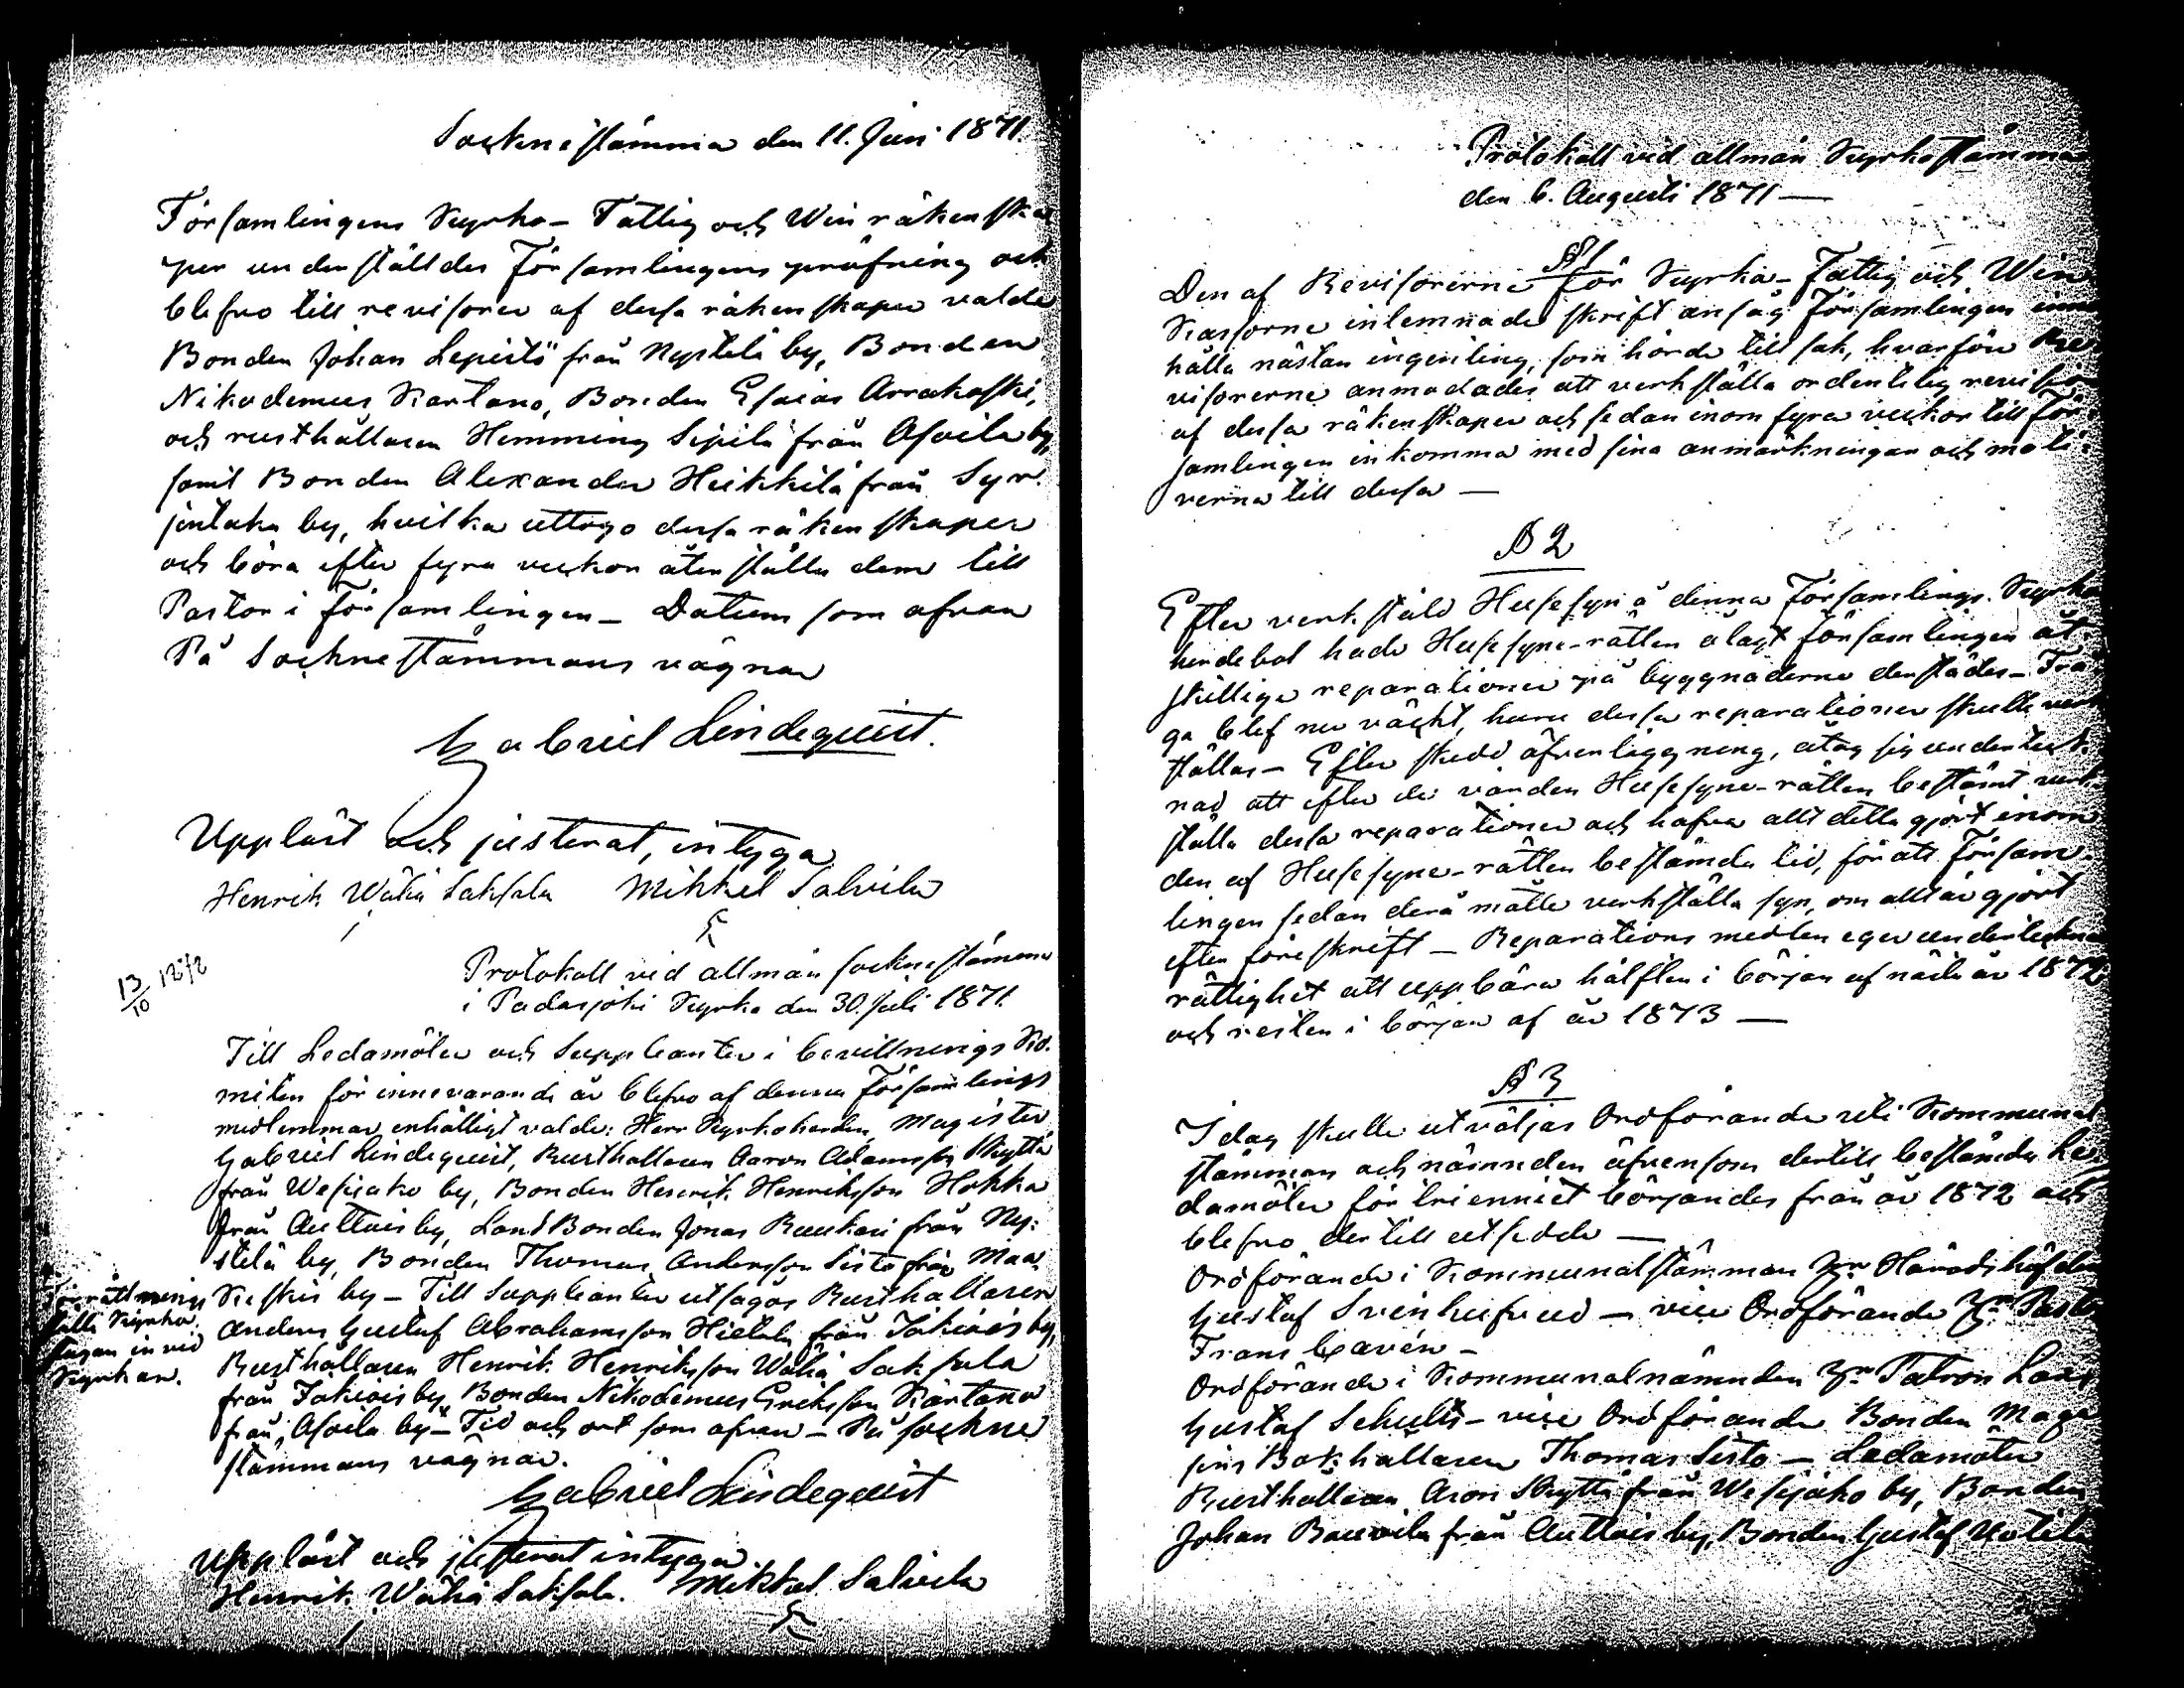 Sockne stämma den 11. Juni 1871.
Församlingens Kyrko- Fattig och Win räkenska
per underställdes Församlingens pröfning och
blefvo till revisorer af dessa räkenskaper valde
Bonden Johan Lepistö från Nystelä by, Bonden
Nikodemus Kartano, Bonden Esaias Arrakoski,
och rusthållaren Hemming Sipilä från Asoila by,
samt Bonden Alexander Heikkilä från Syr-
jentaka by, hvilka uttogo dessa räkenskaper
och böra efter fyra veckor återställa dem till
Pastor i Församlingen – Datum som ofvan
På Sockne stämmans vägnar
Gabriel Lindequist.
Uppläst och justerat, intyga
Henrik Wähä Saksala Mikkel Salvila
13/10 12 1/2
Protokoll vid allmän sockne stämma
i Padasjoki Kyrka den 30. Juli 1871.
Till Ledamöter och Suppleanter i bevillnings Ko-
miten för innevarande år blefvo af denna Församlings
medlemmar enhälligt valde: Herr Kyrkoherden, Magister
Gabriel Lindequist, Rusthållaren Aaron Adamsson Skyttä
från Wesijako by, Bonden Henrik Henriksson Hokka
från Auttois by, Landbonden Jonas Ruukari från Ny-
stelä by, Bonden Thomas Andersson Sisto från Maa-
keskis by – Till Suppleanter utsågos Rusthållaren
Anders Gustaf Abrahamsson Hietala från Jokiois by,
Rusthållaren Henrik Henriksson Wähä Saksala
från Jokiois by, Bonden Nikodemus Eriksson Kartano
från Asoila by – Tid och ort som ofvan – På sockne
stämmans vägnar.
Gabriel Lindequist
Uppläst och justerat intyga
Henrik Wähä Saksala. Mikkel Salvila
Kyrkan.
Protokoll vid allmän Kyrkostämma
den 6. Augusti 1871 —
§ 1
Den af Revisorerne för Kyrko- Fattig och Win
Kassorne inlemnade skrift ansåg Församlingen inne
hålla nästan ingenting, som hörde till sak, hvarföre Re-
visorerne anmodades att verkställa ordentelig revision
af dessa räkenskaper och sedan inom fyra veckor till För-
samlingen inkomma med sina anmärkningar och moti-
verna till dessa —
§ 2
Efter verkställd Husesyn å denna Församlings Kyrko
herdebol hade Husesyne-rätten ålagt församlingen åt-
skilliga reparationer på byggnaderne derstädes – Frå-
ga blef nu väckt, huru dessa reparationer skulle verk-
ställas – Efter skedd öfverläggning, åtog sig underteck-
nad att efter de vården Husesyne-rätten bestämt verk-
ställa dessa reparationer och hafva allt detta gjort inom
den af Husesyne-rätten bestämda tid, för att Försam-
lingen sedan derå måtte verkställa syn, om allt är gjort
efter föreskrift – Reparations medlen eger undertecknad
rättighet att uppbära hälften i början af nästa år 1872
och resten i början af år 1873 —
§ 3
I dag skulle utväljas Ordförande uti Kommunal
stämman och nämnden äfvensom dertill bestämda Le-
damöter för trienniet börjandes från år 1872 och
blefvo dertill utsedde —
Ordförande i Kommunalstämman Hr Häradshöfding
Gustaf Svinhufvud – vice Ordförande Hr Pastor
Frans Cavén –
Ordförande i Kommunalnämnden Hr Patron Lars
Gustaf Schults – vice Ordförande Bonden Maga
sins Bokhållaren Thomas Sisto – Ledamöter
Rusthållaren Aron Skyttä från Wesijako by, Bonden
Johan Bauvila från Auttois by, Bonden Gustaf Uotila